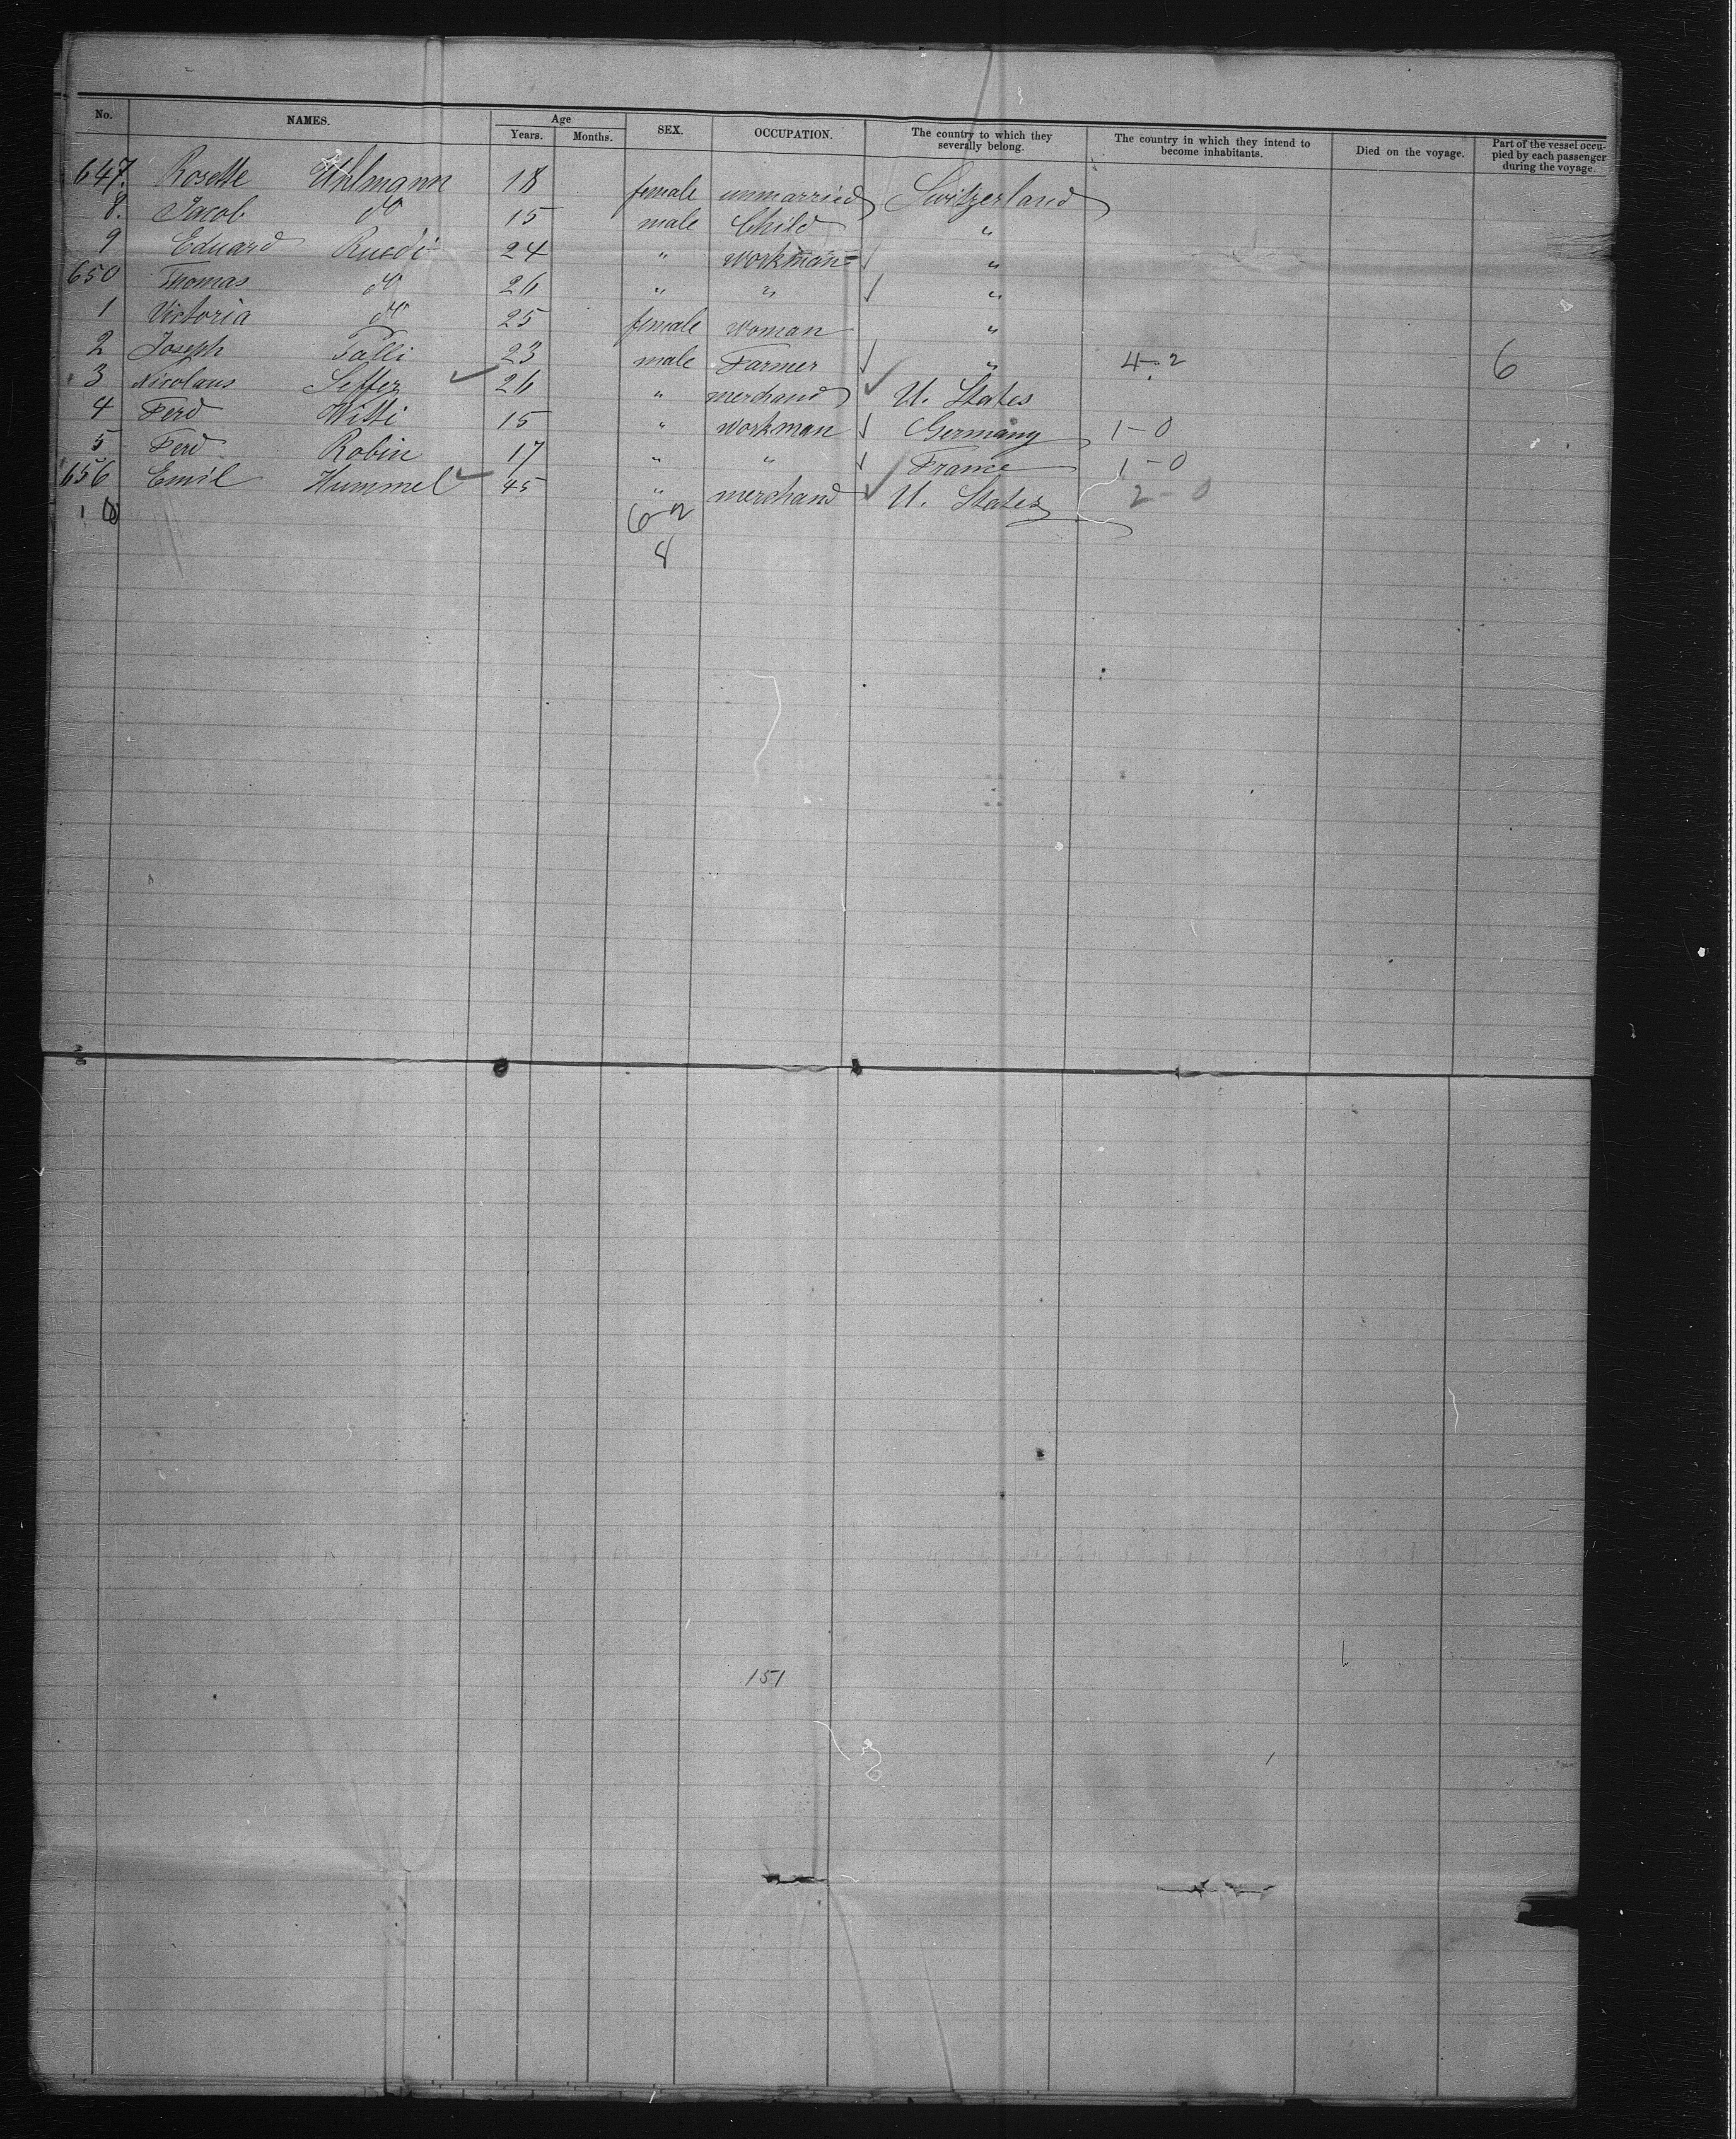 No. NAMES. Age Years. Months. SEX. OCCUPATION. The country to which they severally belong. The country in which they intend to become inhabitants. Died on the voyage. Part of the vessel occupied by each passenger during the voyage.
647. Rosette Uhlmann 18 female unmarried Switzerland
8. Jacob do 15 male Child "
9 Eduard Ruedi 24 " workman "
650 Thomas do 26 " " "
1 Victoria do 25 female woman "
2 Joseph Falli 23 male Farmer " 4-2 6
3 Nicolaus Seffer 26 " merchand U. States
4 Ferd Witti 15 " workman Germany 1-0
5 Ferd Robin 17 " " France 1-0
656 Emil Hummel 45 " merchand U. States 2-0
10 6-2
8
151